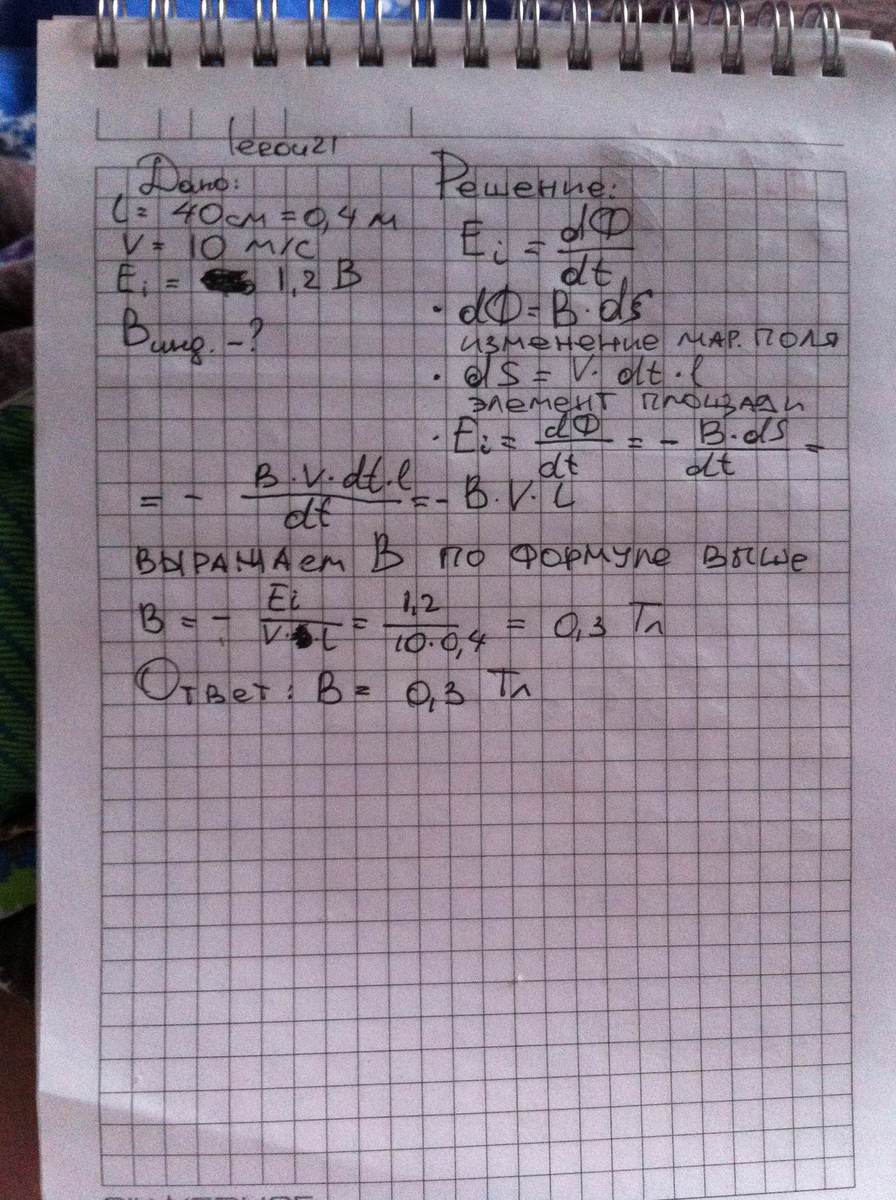 leeou21
Дано:
l = 40см = 0,4 м
V = 10 м/с
Ei = 1,2 В
Bинд. - ?
Решение:
Ei = dФ/dt
· dФ = B · ds
изменение маг. поля
· dS = V · dt · l
элемент площади
· Ei = dФ/dt = - B·ds/dt =
= - B·V·dt·l/dt = - B·V·L
выражаем B по формуле выше
B = - Ei/V·l = 1,2/10·0,4 = 0,3 Тл
Ответ: B = 0,3 Тл